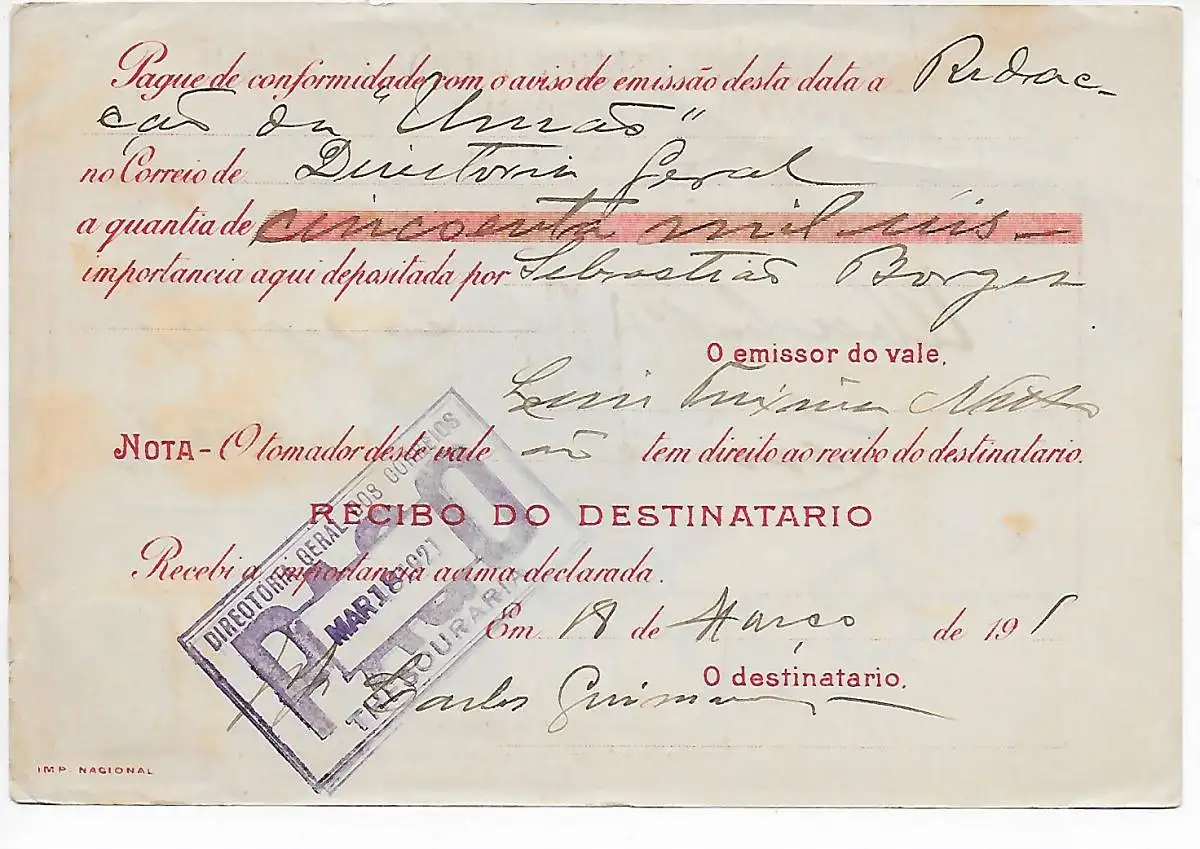 Pague de conformidade com o aviso de emissão desta data a Redac-
ção da "União"
no Correio de Directoria Geral
a quantia de cincoenta mil réis -
importancia aqui depositada por Sebastião Borges
O emissor do vale,
NOTA - O tomador deste vale não tem direito ao recibo do destinatario.
RECIBO DO DESTINATARIO
Recebi a importancia acima declarada.
Em 18 de Março de 191
O destinatario,
Carlos
DIRECTORIA GERAL DOS CORREIOS
PAGO
MAR 18 1921
THESOURARIA
IMP. NACIONAL